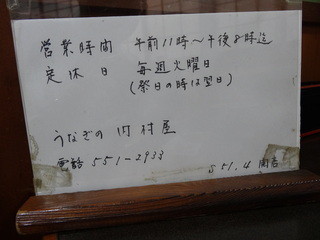 営業時間 午前11時〜午後8時迄
定休日 毎週火曜日
(祭日の時は翌日)
うなぎの 内村屋
電話 551-2933
S51.4 開店